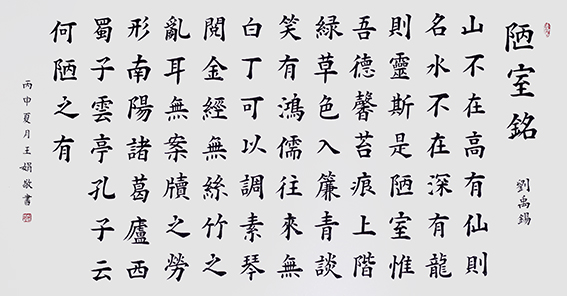 陋室銘
劉禹錫
山不在高有仙則
名水不在深有龍
則靈斯是陋室惟
吾德馨苔痕上階
綠草色入簾青談
笑有鴻儒往來無
白丁可以調素琴
閱金經無絲竹之
亂耳無案牘之勞
形南陽諸葛廬西
蜀子雲亭孔子云
何陋之有
丙申夏月王娟敬書